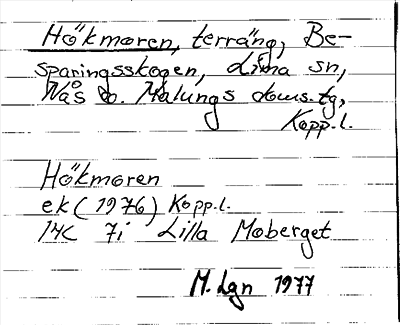 Hökmoren, terräng, Be-
sparingsskogen, Lima sn,
Nås o. Malungs doms.tg,
Kopp.l.
Hökmoren
ek (1976) Kopp.l.
14C 7i Lilla Moberget
M. Lgn 1977